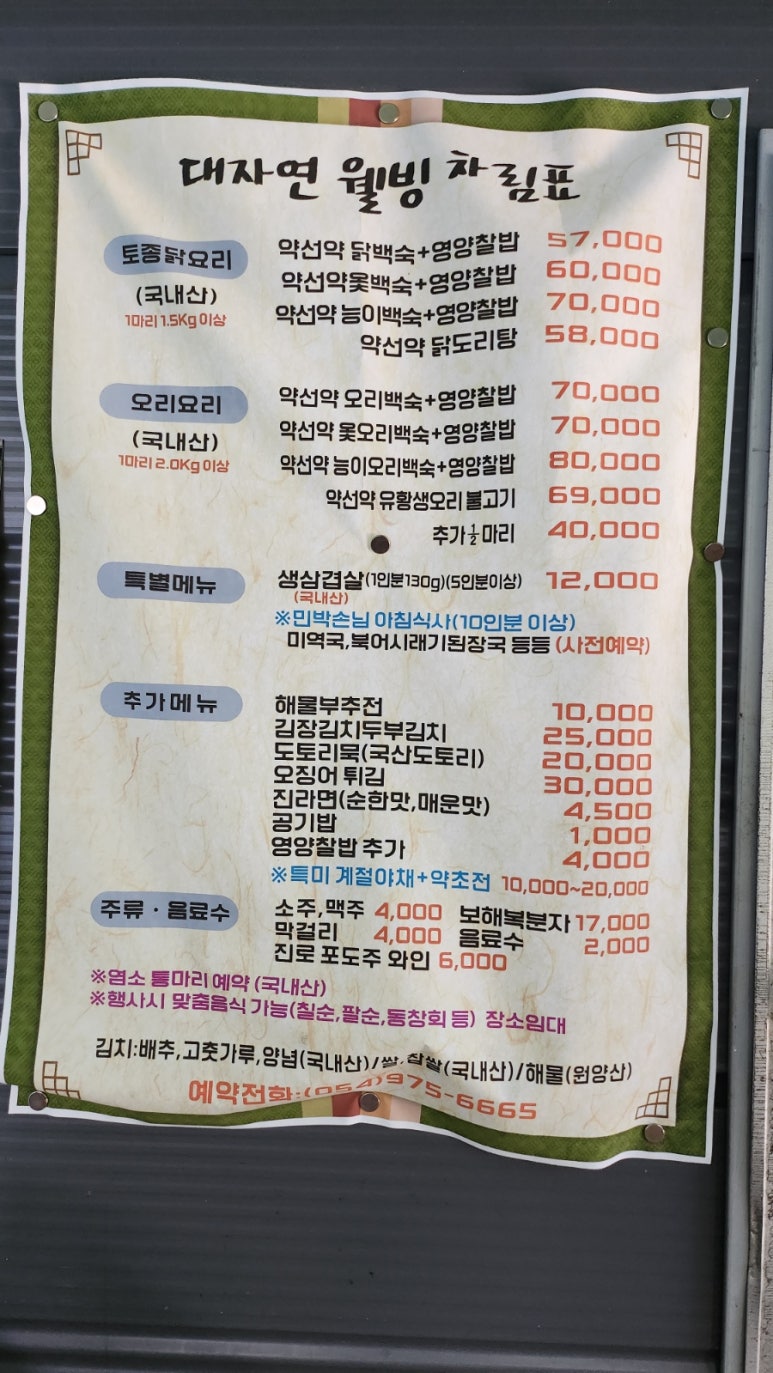 대자연 웰빙 차림표
토종닭요리
(국내산)
1마리 1.5Kg 이상
약선약 닭백숙+영양찰밥 57,000
약선약옻백숙+영양찰밥 60,000
약선약 능이백숙+영양찰밥 70,000
약선약 닭도리탕 58,000
오리요리
(국내산)
1마리 2.0Kg 이상
약선약 오리백숙+영양찰밥 70,000
약선약 옻오리백숙+영양찰밥 70,000
약선약 능이오리백숙+영양찰밥 80,000
약선약 유황생오리 불고기 69,000
추가 ½ 마리 40,000
특별메뉴
생삼겹살(1인분130g)(5인분이상) 12,000
(국내산)
※민박손님 아침식사(10인분 이상)
미역국,북어시래기된장국 등등 (사전예약)
추가메뉴
해물부추전 10,000
김장김치두부김치 25,000
도토리묵(국산도토리) 20,000
오징어 튀김 30,000
진라면(순한맛,매운맛) 4,500
공기밥 1,000
영양찰밥 추가 4,000
※특미 계절야채+약초전 10,000~20,000
주류 · 음료수
소주,맥주 4,000 보해복분자 17,000
막걸리 4,000 음료수 2,000
진로 포도주 와인 6,000
※염소 통마리 예약 (국내산)
※행사시 맞춤음식 가능(칠순,팔순,동창회 등) 장소임대
김치:배추,고춧가루,양념(국내산)/쌀,찹쌀(국내산)/해물(원양산)
예약전화:(054)975-6665